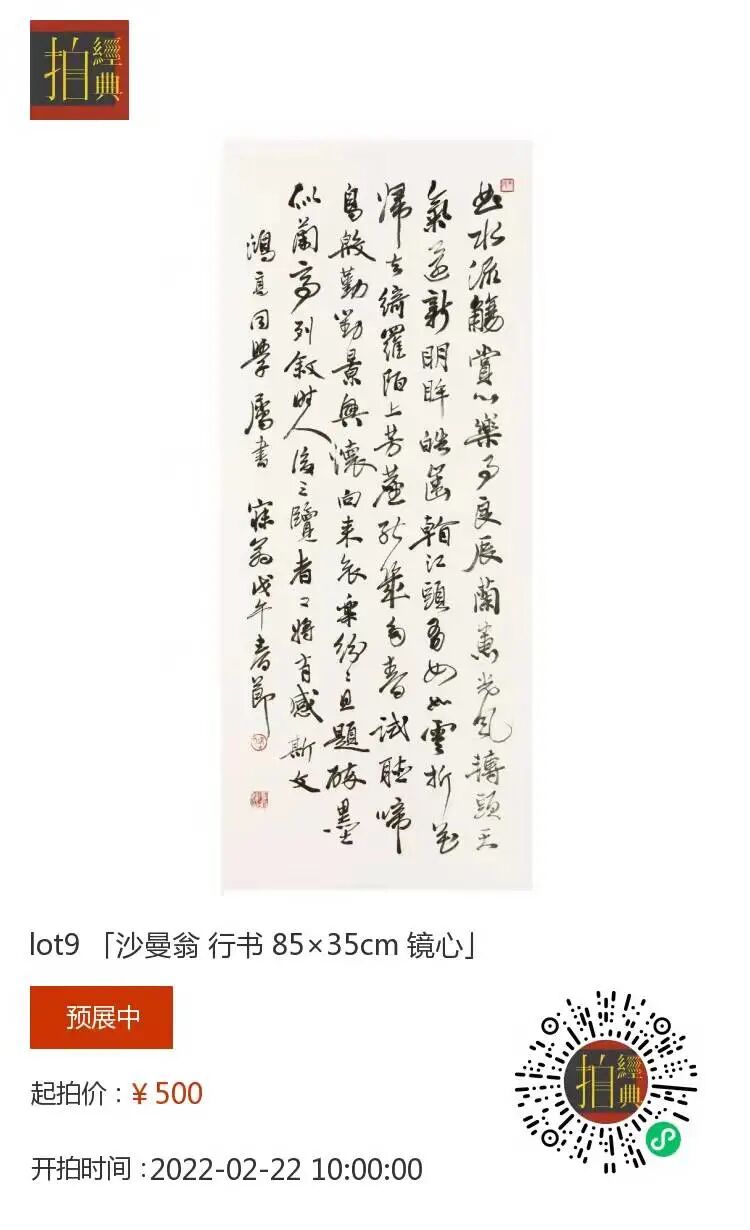 拍 經典
曲水流觴賞心樂事良辰蘭蕙光風轉頭天
氣還新明眸皓齒看江頭有女如雲折花
歸去綺羅陌上芳塵能多春試聽啼
鳥殷勤對景興懷向來哀樂紛〻且題醉墨
似蘭亭列敘時人後之覽者又將有感斯文
鴻同學屬書 寐翁戊午春節
lot9 「沙曼翁 行书 85×35cm 镜心」
预展中
起拍价：¥ 500
开拍时间：2022-02-22 10:00:00
拍 經典